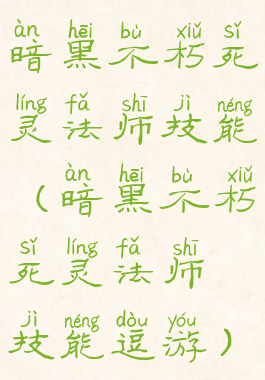 àn hēi bù xiǔ sǐ
暗黑不朽死
líng fǎ shī jì néng
灵法师技能
àn hēi bù xiǔ
（暗黑不朽
sǐ líng fǎ shī
死灵法师
jì néng dòu yóu
技能逗游）